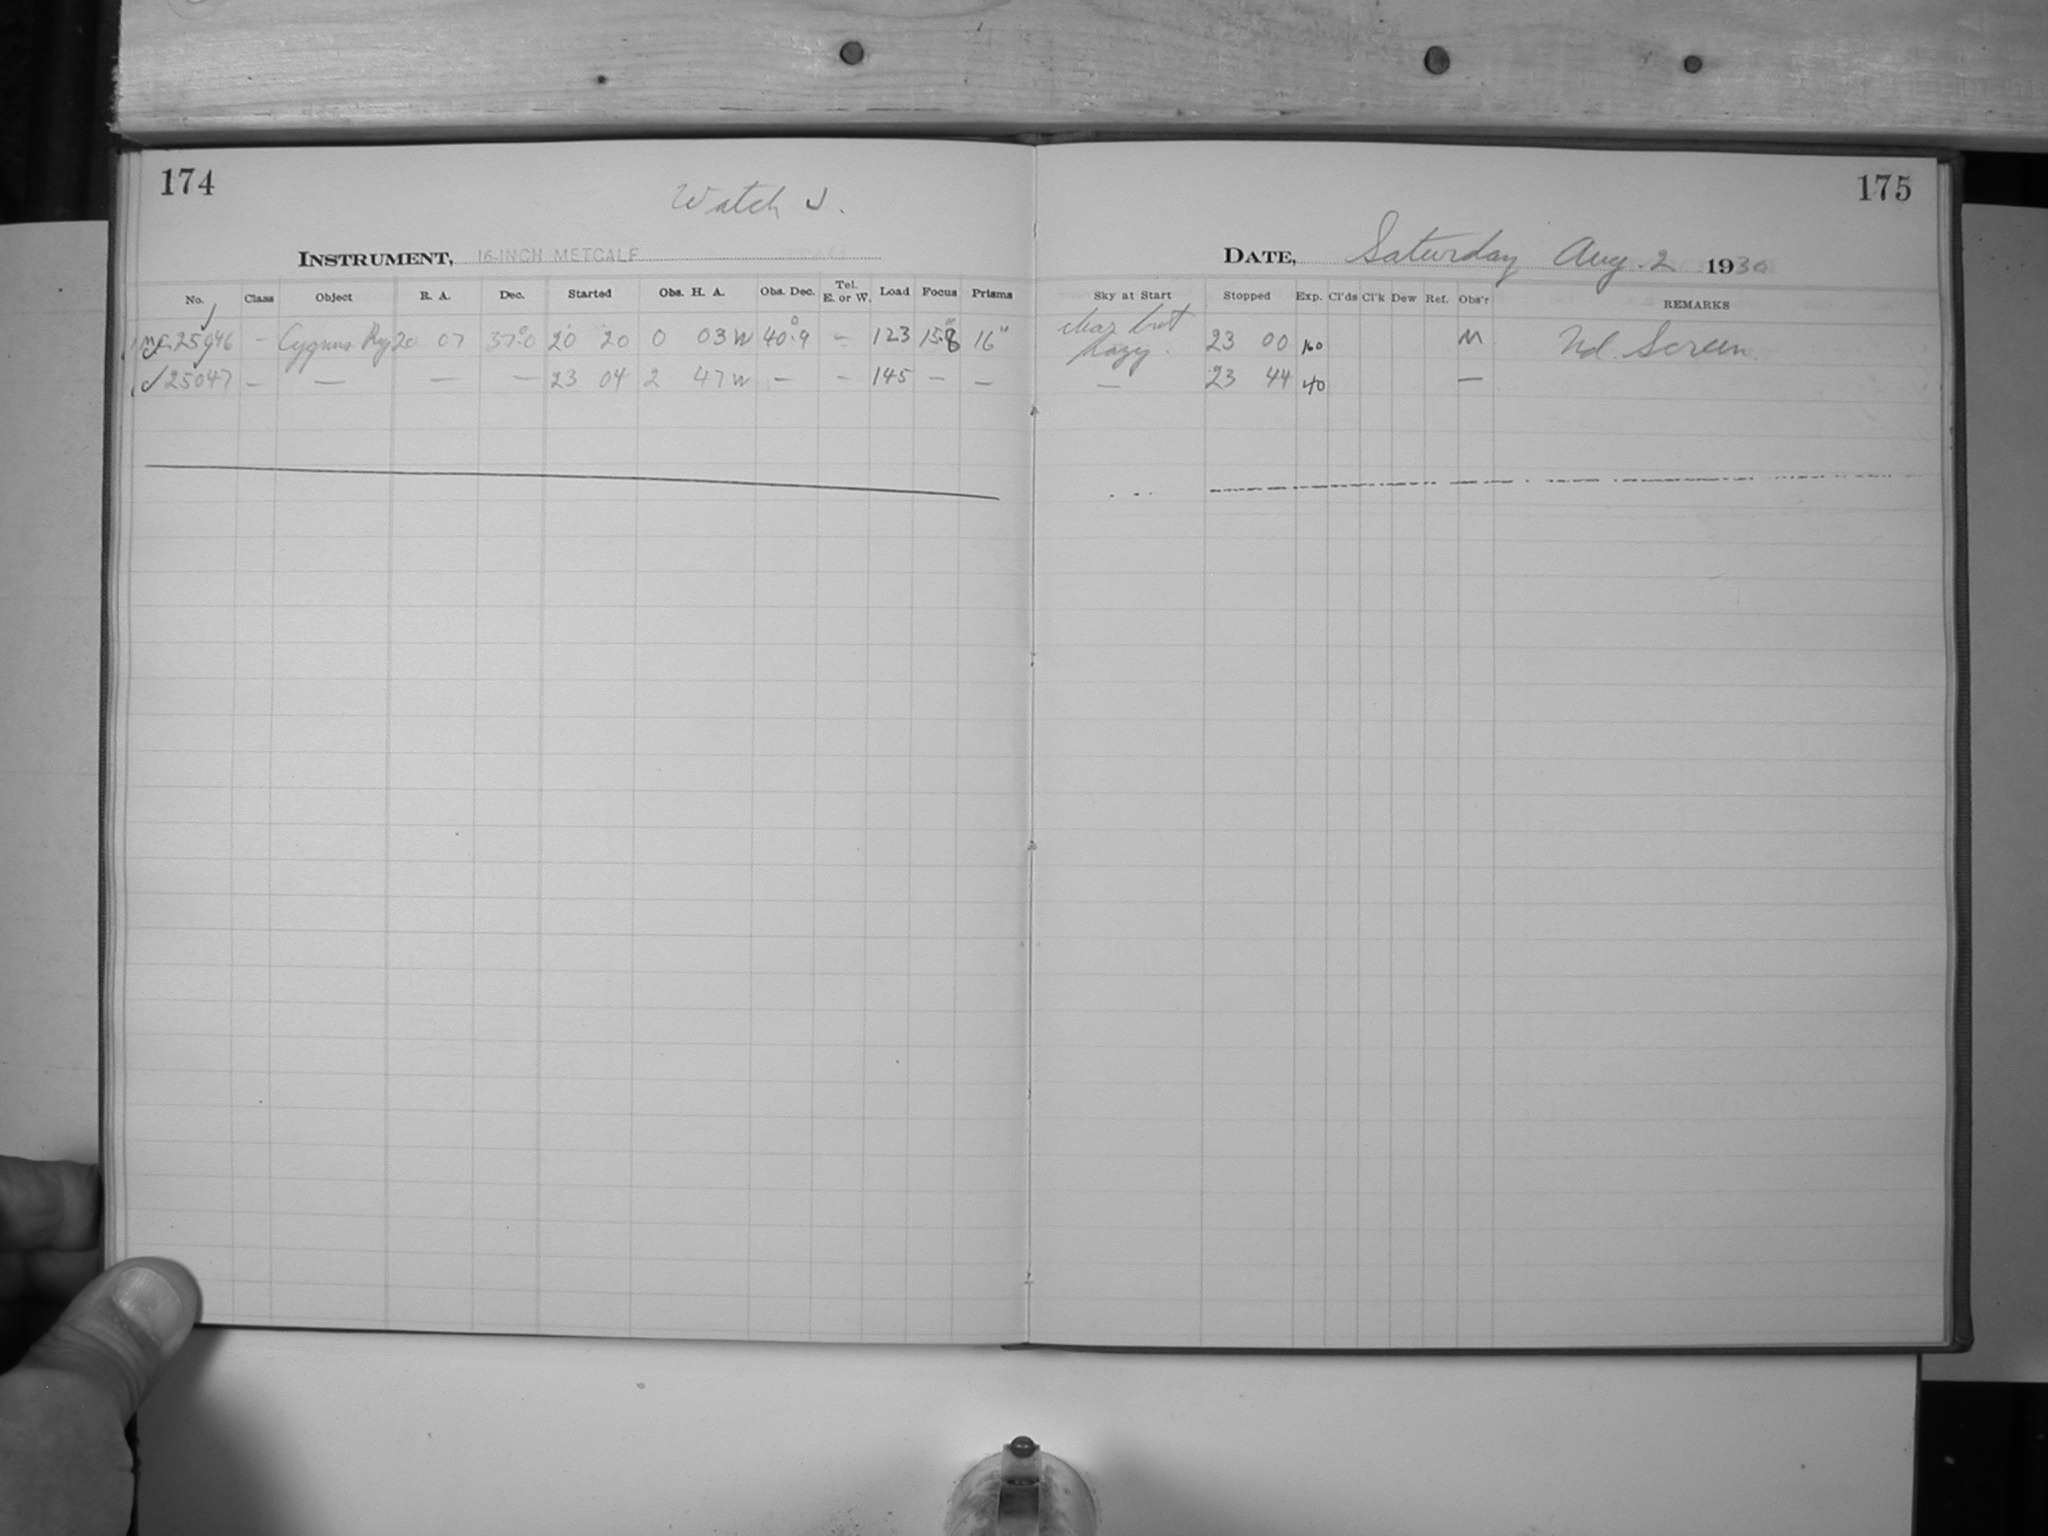 174
Watch J.
INSTRUMENT, 16-INCH METCALF
No. Class Object R. A. Dec. Started Obs. H. A. Obs. Dec. Tel. E. or W. Load Focus Prisms
MC 25946 — Cygnus Reg 20 07 37°0 20 20 0 03 W 40°.9 — 123 15.8 16"
✓ 25047 — — — — 23 04 2 47 W — — 145 — —
175
DATE, Saturday Aug. 2 1930
Sky at Start Stopped Exp. Cl'ds Cl'k Dew Ref. Obs'r REMARKS
clear but hazy. 23 00 160 M Nd. Screen.
— 23 44 40 —